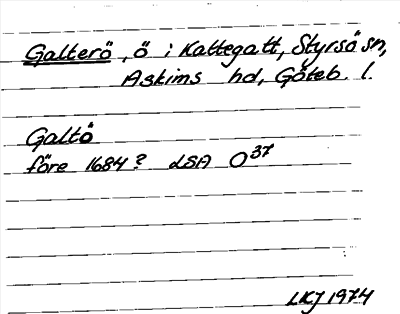 Galterö, ö i Kattegatt, Styrsö sn,
Askims hd, Göteb. l.
Galtö
före 1684? LSA O37
LKJ 1974